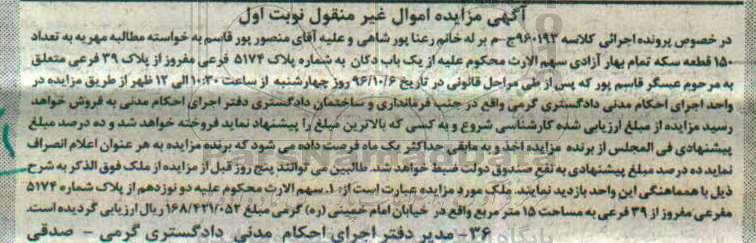 آگهی مزایده اموال غیر منقول نوبت اول
در خصوص پرونده اجرائی کلاسه ۹۶۰۱۹۳ج-م بر له خانم رعنا پور شاهی و علیه آقای منصور پور قاسم به خواسته مطالبه مهریه به تعداد
۱۵۰ قطعه سکه تمام بهار آزادی سهم الارث محکوم علیه از یک باب دکان به شماره پلاک ۵۱۷۴ فرعی مفروز از پلاک ۳۹ فرعی متعلق
به مرحوم عسگر قاسم پور که پس از طی مراحل قانونی در تاریخ ۹۶/۱۰/۶ روز چهارشنبه از ساعت ۱۰:۳۰ الی ۱۲ ظهر از طریق مزایده در
واحد اجرای احکام مدنی دادگستری گرمی واقع در جنب فرمانداری و ساختمان دادگستری دفتر اجرای احکام مدنی به فروش خواهد
رسید مزایده از مبلغ ارزیابی شده کارشناسی شروع و به کسی که بالاترین مبلغ را پیشنهاد نماید فروخته خواهد شد و ده درصد مبلغ
پیشنهادی فی المجلس از برنده مزایده اخذ و به مابقی حداکثر یک ماه فرصت داده می شود که برنده مزایده به هر عنوان اعلام انصراف
نماید ده درصد مبلغ پیشنهادی به نفع صندوق دولت ضبط خواهد شد. طالبین می توانند پنج روز قبل از مزایده از ملک فوق الذکر به شرح
ذیل با هماهنگی این واحد بازدید نمایند. ملک مورد مزایده عبارت است از: ۱. سهم الارث محکوم علیه دو نوزدهم از پلاک شماره ۵۱۷۴
مفرعی مفروز از ۳۹ فرعی به مساحت ۱۵ متر مربع واقع در خیابان امام خمینی (ره) گرمی مبلغ ۱۶۸/۴۲۱/۰۵۲ ریال ارزیابی گردیده است.
۳۶- مدیر دفتر اجرای احکام مدنی دادگستری گرمی - صدقی